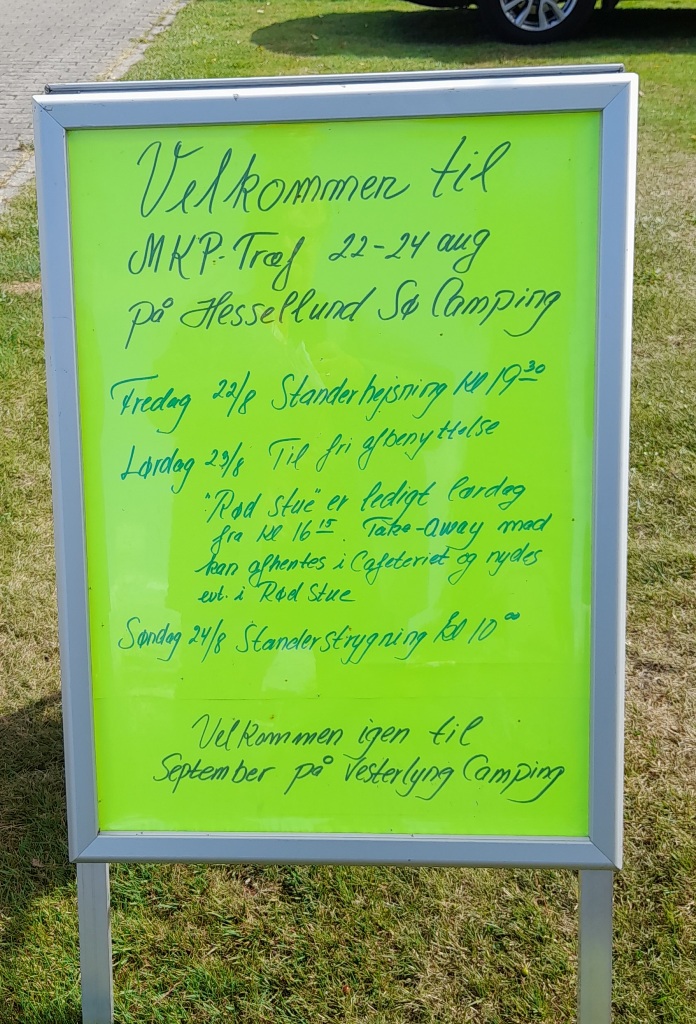 Velkommen til
MKP-Træf 22-24 aug
på Hessellund Sø Camping
Fredag 22/8 Standerhejsning kl 19³⁰
Lørdag 23/8 Til fri afbenyttelse
"Rød Stue" er ledigt lørdag
fra kl 16¹⁵. Take-Away mad
kan afhentes i Cafeteriet og nydes
evt. i Rød Stue
Søndag 24/8 Standerstrygning kl 10⁰⁰
Velkommen igen til
September på Vesterlyng Camping